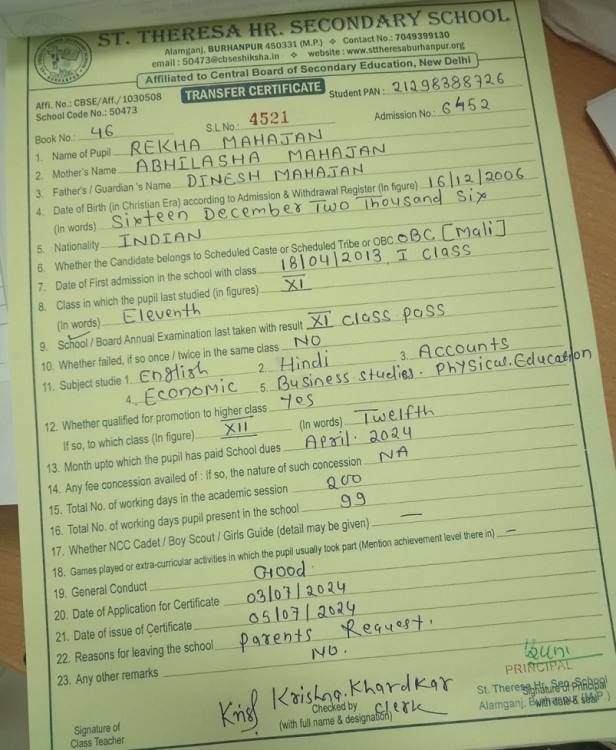 ST. THERESA HR. SECONDARY SCHOOL
Alamganj, BURHANPUR 450331 (M.P.) ❖ Contact No.: 7049399130
email : 50473@cbseshiksha.in ❖ website : www.sttheresaburhanpur.org
Affiliated to Central Board of Secondary Education, New Delhi
Affi. No.: CBSE/Aff./1030508 TRANSFER CERTIFICATE Student PAN : 21298388726
School Code No.: 50473
Book No.: 46 S.L.No.: 4521 Admission No.: 6452
1. Name of Pupil REKHA MAHAJAN
2. Mother's Name ABHILASHA MAHAJAN
3. Father's / Guardian 's Name DINESH MAHAJAN
4. Date of Birth (in Christian Era) according to Admission & Withdrawal Register (In figure) 16/12/2006
(In words) Sixteen December Two Thousand Six
5. Nationality INDIAN
6. Whether the Candidate belongs to Scheduled Caste or Scheduled Tribe or OBC OBC [Mali]
7. Date of First admission in the school with class 18/04/2013, I class
8. Class in which the pupil last studied (in figures) XI
(In words) Eleventh
9. School / Board Annual Examination last taken with result XI class pass
10. Whether failed, if so once / twice in the same class NO
11. Subject studie 1. English 2. Hindi 3. Accounts
4. Economic 5. Business studies. Physical. Education
12. Whether qualified for promotion to higher class Yes
If so, to which class (In figure) XII (In words) Twelfth
13. Month upto which the pupil has paid School dues April. 2024
14. Any fee concession availed of : If so, the nature of such concession NA
15. Total No. of working days in the academic session 200
16. Total No. of working days pupil present in the school 99
17. Whether NCC Cadet / Boy Scout / Girls Guide (detail may be given) —
18. Games played or extra-curricular activities in which the pupil usually took part (Mention achievement level there in) —
19. General Conduct Good.
20. Date of Application for Certificate 03/07/2024
21. Date of issue of Certificate 05/07/2024
22. Reasons for leaving the school Parents Request.
23. Any other remarks NO.
PRINCIPAL
Krishna. Khardkar
St. Theresa Hr. Sec. School
Signature of Principal
Checked by Clerk
Alamganj, Burhanpur (M.P.)
with date & seal
Signature of
Class Teacher
(with full name & designation)